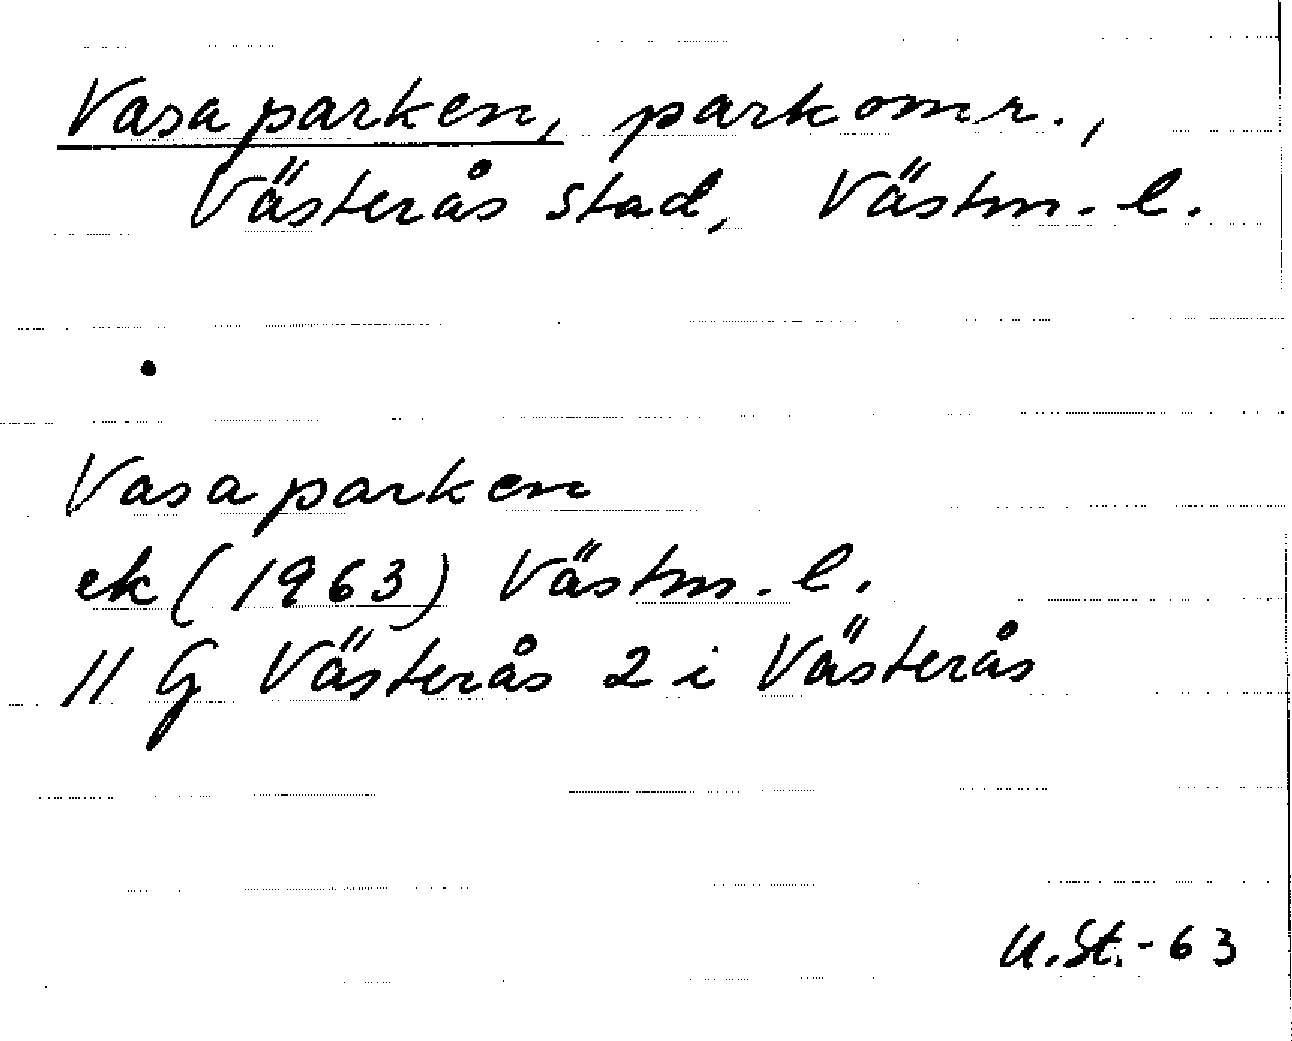 Vasaparken, parkomr.,
Västerås stad, Västm. l.
Vasaparken
ek (1963) Västm. l.
11 G Västerås 2 i Västerås
U. St. -63